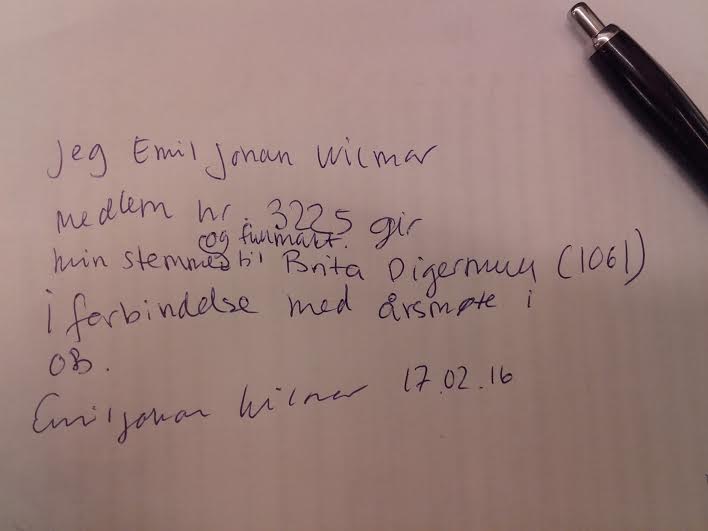 Jeg Emil Johan Wilmar
medlem nr. 3225 gir
og fullmakt.
min stemme til Brita Digermul (1061)
i forbindelse med årsmøte i
OB.
Emil Johan Wilmar 17.02.16